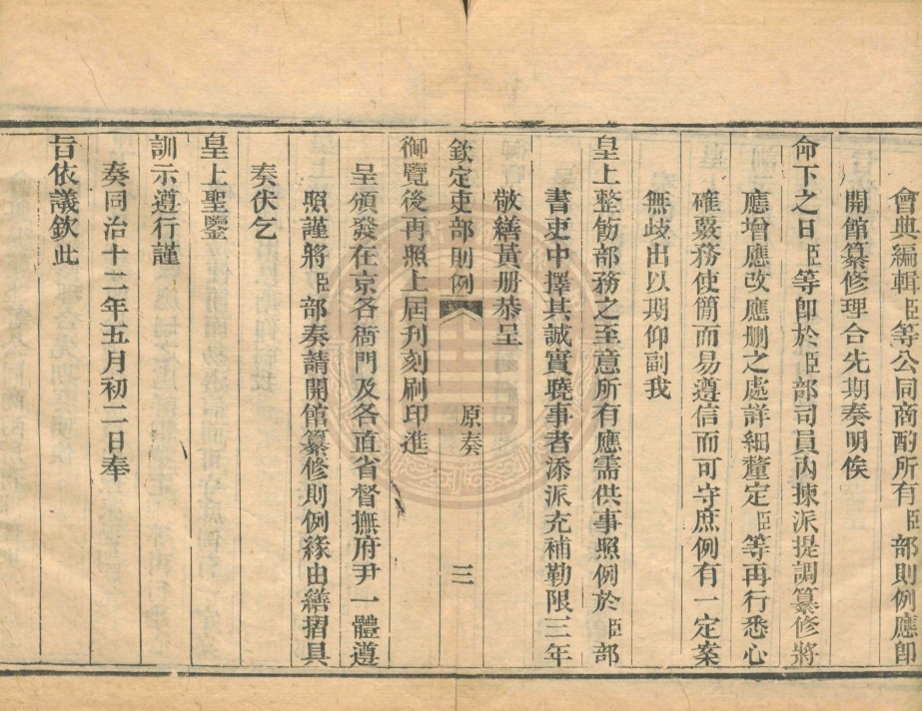 會典編輯臣等公同商酌所有臣部則例應卽
開館纂修理合先期奏明俟
命下之日臣等卽於臣部司員內揀派提調纂修將
應增應改應删之處詳細釐定臣等再行悉心
確覈務使簡而易遵信而可守庶例有一定案
無歧出以期仰副我
皇上整飭部務之至意所有應需供事照例於臣部
書吏中擇其誠實曉事者添派充補勒限三年
敬繕黃册恭呈
欽定吏部則例 原奏 三
御覽後再照上屆刋刻刷印進
呈頒發在京各衙門及各直省督撫府尹一體遵
照謹將臣部奏請開館纂修則例緣由繕摺具
奏伏乞
皇上聖鑒
訓示遵行謹
奏同治十二年五月初二日奉
旨依議欽此